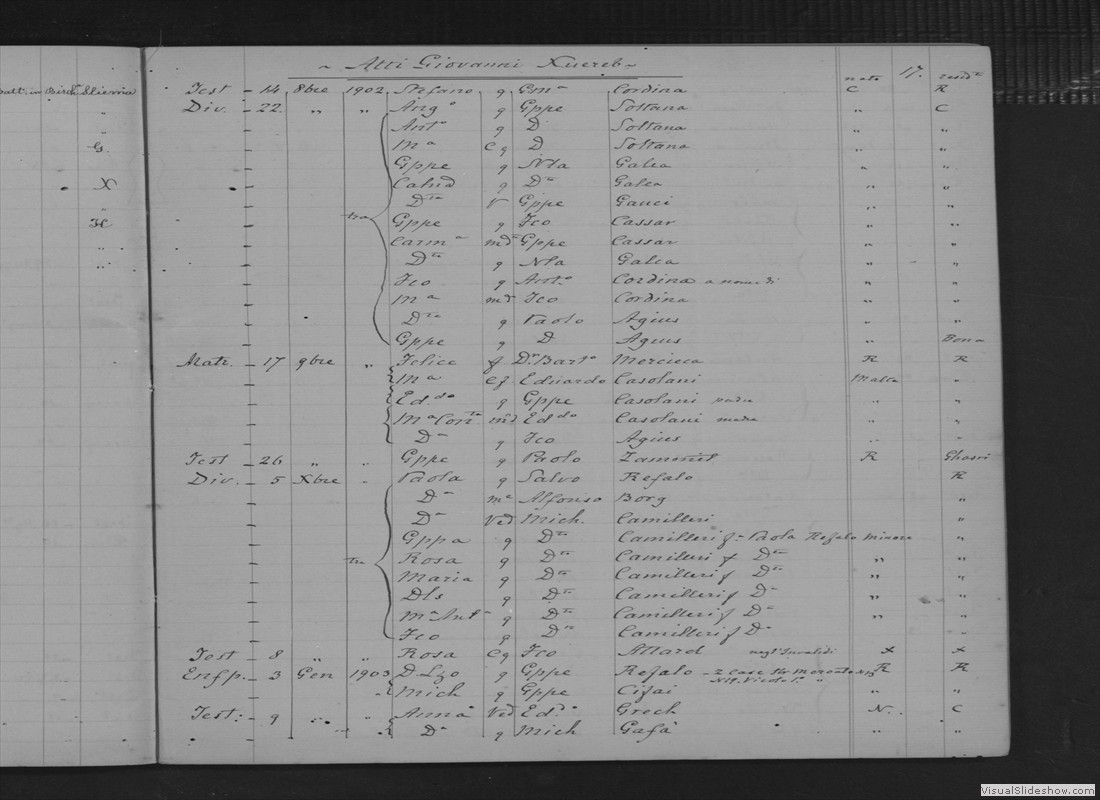 ~ Atti Giovanni Xuereb ~
17.
nato resdte
Batt. in Birch. Sliema
Test - 14 8bre 1902 Stefano q Gma Cordina C R
Div. - 22 " " Ango q Gppe Soltana " C
Anto q D Soltana " "
G. Ma Cq D Soltana " "
Gppe q Nla Galea " "
X Calcd q Dta Galea " "
Dta V Gppe Gauci " "
tra Gppe q Fco Cassar " "
Carma md Gppe Cassar " "
Dta q Nla Galea " "
Fco q Anto Cordina a nome di " "
Ma md Fco Cordina " "
Dta q Paolo Agius " "
Gppe q D Agius " Bona
Matr. - 17 9bre " Felice f Dr Barto Mercieca R R
Ma Cf Eduardo Casolani Malta "
Eddo q Gppe Casolani padre " "
Ma Contta md Eddo Casolani madre " "
Da q Fco Agius " "
Test - 26 " " Gppe q Paolo Zammit R Ghasri
Div. - 5 Xbre " Paola q Salvo Refalo R
Da ma Alfonso Borg "
Da Ved Mich. Camilleri "
Gppa q Dto Camilleri f = Paola Refalo minore "
tra Rosa q Dto Camilleri f Dta " "
Maria q Dto Camilleri f Dta " "
Dls q Dto Camilleri f Da " "
Ma Anta q Dto Camilleri f Da " "
Fco q Dto Camilleri f Da "
Test - 8 " " Rosa Cq Fco Attard negl'Invalidi x x
Enfp. - 3 Gen 1903 D. Lzo q Gppe Refalo - 2 case Str. Mercato R R
Mich q Gppe Cifai " "
Test: - 9 " " Anna Ved Edo Grech N. C
Da q Mich Gafà " "
VisualSlideshow.com